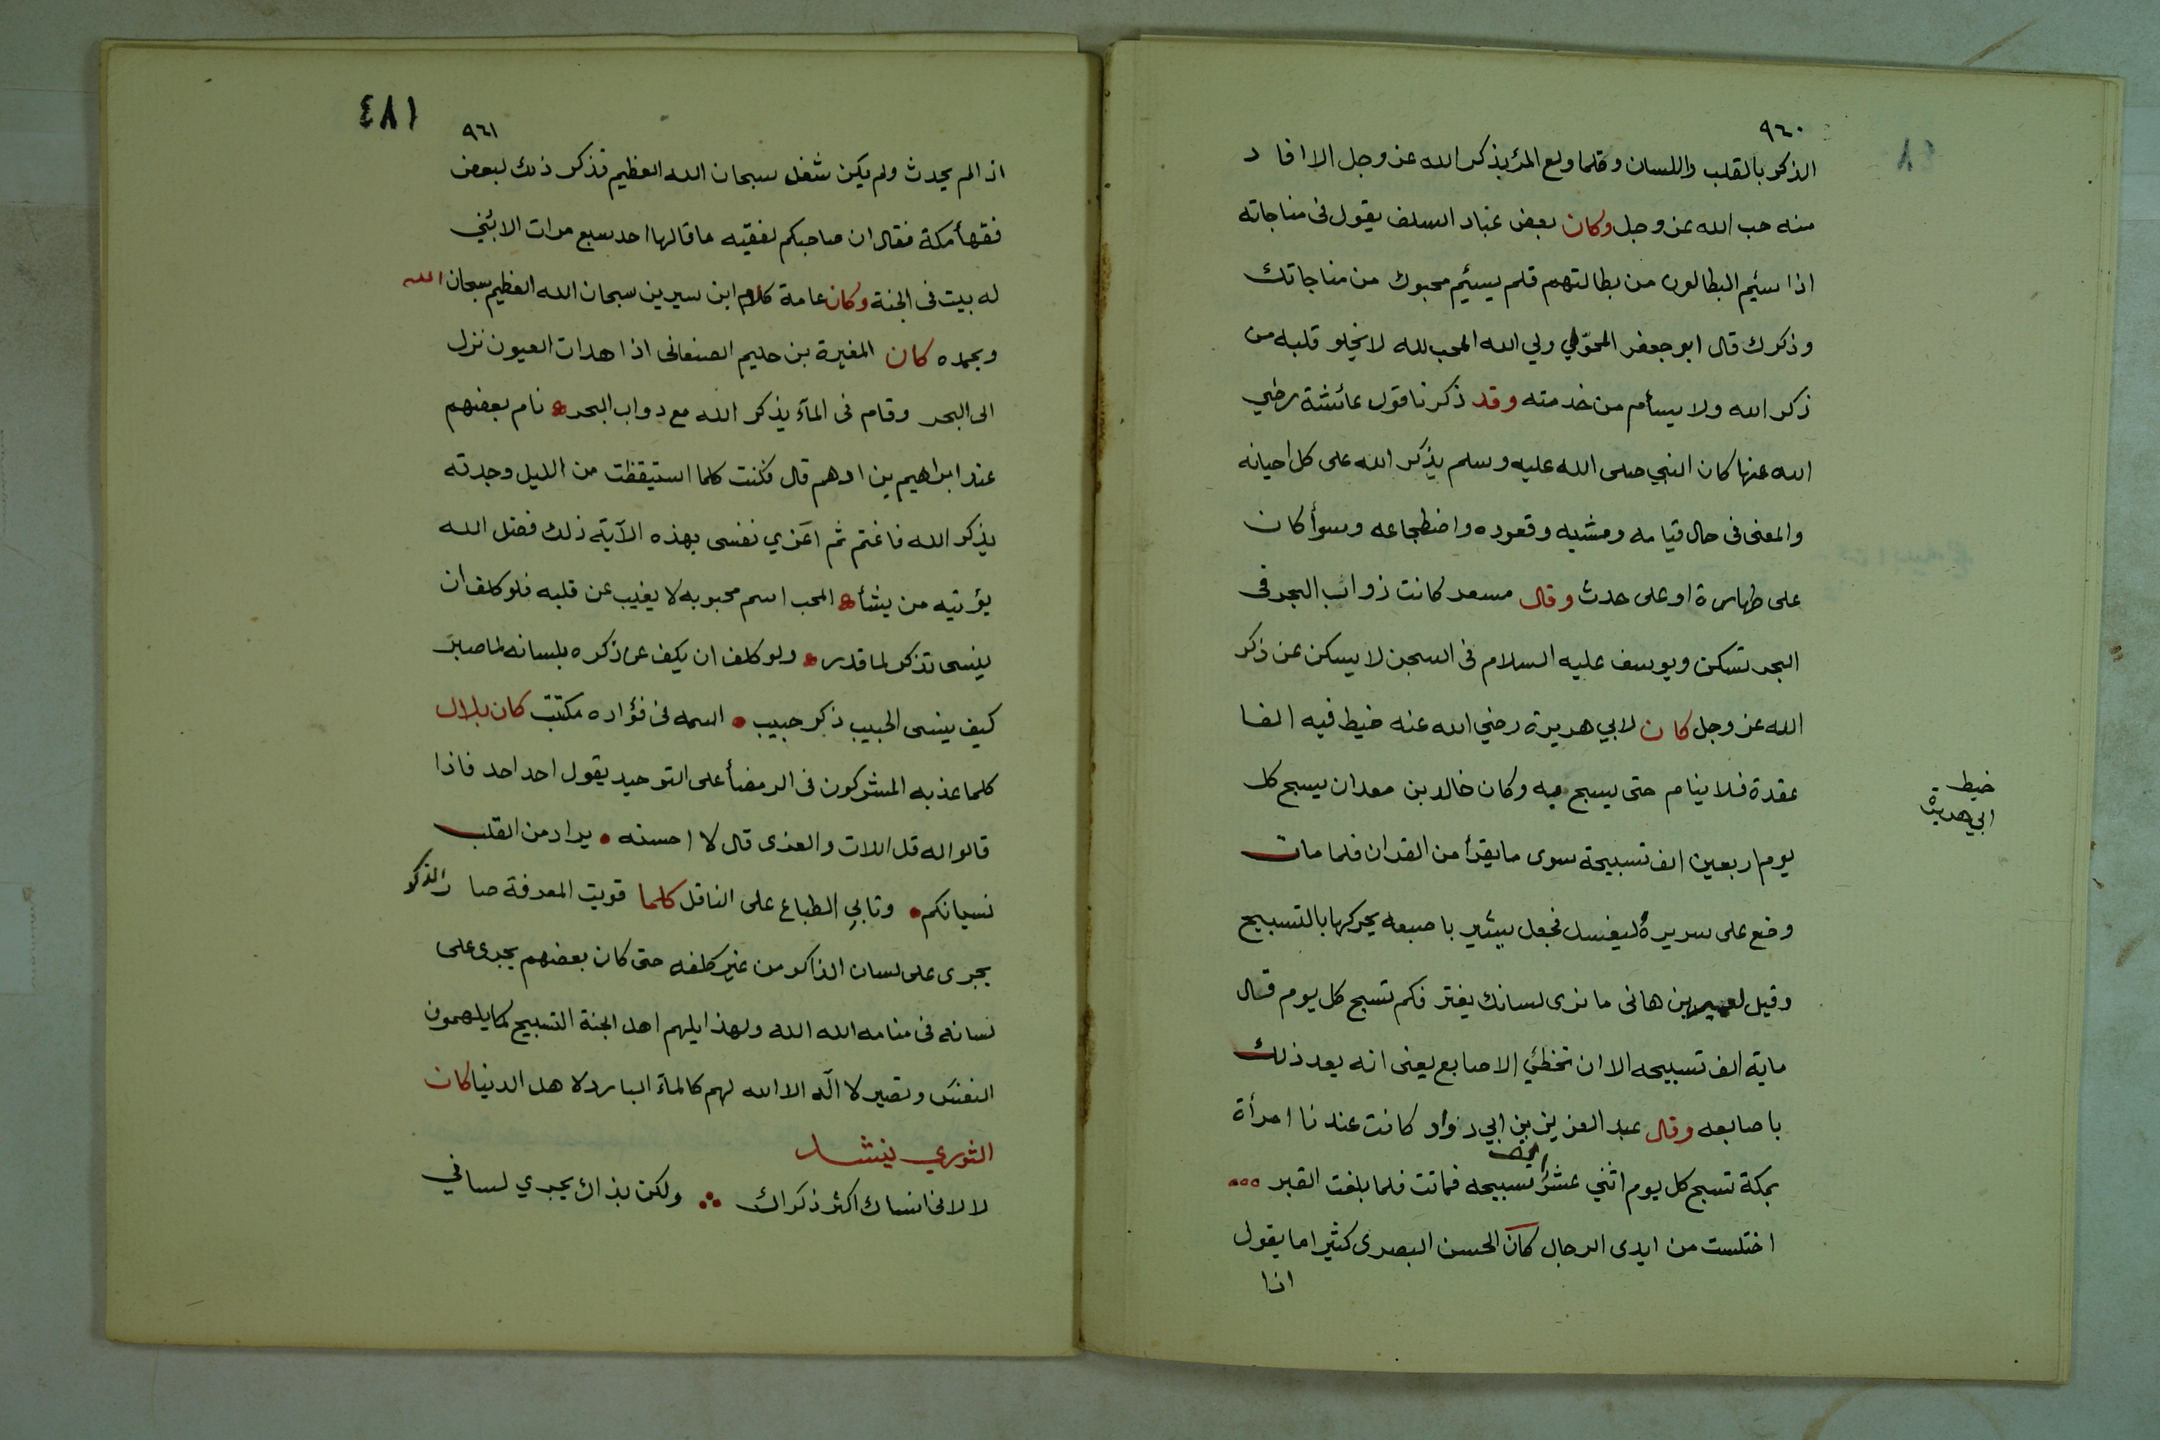 ٩٦٠
الذكر بالقلب واللسان وقلما ولع المرٔ بذكر الله عز وجل الا افاد
منه حب الله عز وجل وكان بعض عباد السلف يقول فى مناجاته
اذا سئيم البطالون من بطالتهم فلم يسئيم محبوك من مناجاتك
وذكرك قال ابو جعفر المحوّلي ولي الله المحب لله لا يخلو قلبه من
ذكر الله ولا يسأم من خدمته وقد ذكرنا قول عائشة رضي
الله عنها كان النبي صلى الله عليه وسلم يذكر الله على كل احيانه
والمعنى فى حال قيامه ومشيه وقعوده واضطجاعه وسوأ كان
على طهارة او على حدث وقال مسعر كانت ذوائب البحر فى
البحر تسكن ويوسف عليه السلام فى السجن لا يسكن عن ذكر
الله عز وجل كان لابي هريرة رضي الله عنه خيط فيه الفا
عقدة فلا ينام حتى يسبح به وكان خالد بن معدان يسبح كل
خيط
ابي هريرة
يوم اربعين الف تسبيحة سوى ما يقرأ من القران فلما مات
وضع على سريره ليغسل فجعل يشير باصبعه يحركها بالتسبيح
وقيل لعمير بن هانى ما نرى لسانك يفتر فكم تسبح كل يوم قال
ماية الف تسبيحه الا ان تخطئ الاصابع يعنى انه يعد ذلك
باصابعه وقال عبد العزيز بن ابي رواد كانت عندنا امرأة
بمكة تسبح كل يوم اثني عشر الف تسبيحه فماتت فلما بلغت القبر
اختلست من ايدى الرجال كان الحسن البصرى كثيرا ما يقول
اذا
١٨٤
٩٦١
اذا لم يحدث ولم يكن شغل سبحان الله العظيم فذكر ذلك لبعض
فقهأ مكة فقال ان صاحبكم لفقيه ما قالها احد سبع مرات الا بني
له بيت فى الجنة وكان عامة كلام ابن سيرين سبحان الله العظيم سبحان الله
وبحمده كان المغيرة بن حليم الصنعانى اذا هدات العيون نزل
الى البحر وقام فى المآء يذكر الله مع دواب البحر نام بعضهم
عند ابراهيم بن ادهم قال فكنت كلما استيقظت من الليل وجدته
يذكر الله فاغتم ثم اعزي نفسى بهذه الآية ذلك فضل الله
يؤتيه من يشأ المحب اسم محبوبه لا يغيب عن قلبه فلو كلف ان
ينسى تذكر لما قدر ولو كلف ان يكف عن ذكره بلسانه لما صبر
كيف ينسى الحبيب ذكر حبيب اسمه فى فؤاده مكتتب كان بلال
كلما عذبه المشركون فى الرمضأ على التوحيد يقول احد احد فاذا
قالوا له قل اللات والعزى قال لا احسنه يراد من القلب
نسيانكم وتابي الطباع على الناقل كلما قويت المعرفة صار الذكر
يجرى على لسان الذاكر من غير كلفه حتى كان بعضهم يجرى على
لسانه فى منامه الله الله ولهذا يلهم اهل الجنة التسبيح كما يلهمون
النفس وتصير لا اله الا الله لهم كالمآء البارد لاهل الدنيا كان
الثوري ينشد
لا لانى انساك اكثر ذكراك ولكن بذاك يجري لساني